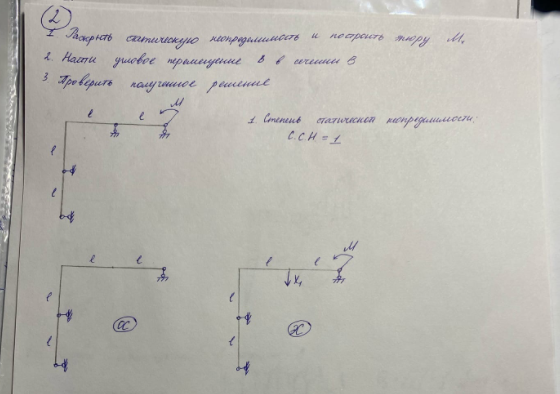 2
1. Раскрыть статическую неопределимость и построить эпюру Mx
2. Найти угловое перемещение В в сечении В
3. Проверить полученное решение
l l M
l
l
1. Степень статической неопределимости:
С.С.Н = 1
l l
l
l
l l M
X1
l
l